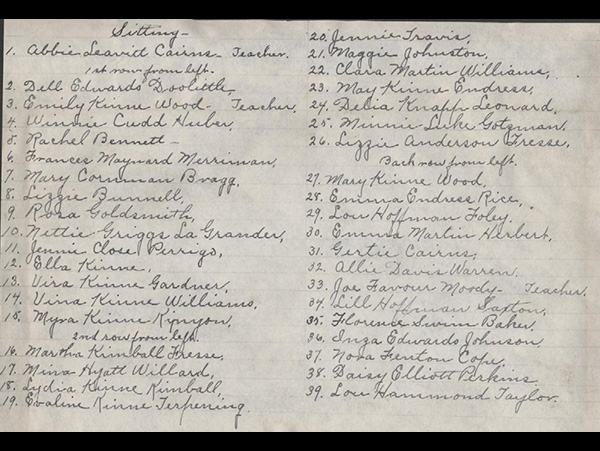 Sitting -
1. Abbie Leavitt Cairns - Teacher.
1st row from left.
2. Dell Edwards Doolittle,
3. Emily Kinne Wood - Teacher,
4. Winnie Cudd Huber,
5. Rachel Bennett -
6. Frances Maynard Merriman,
7. Mary Cornman Bragg,
8. Lizzie Bunnell,
9. Rosa Goldsmith,
10. Nettie Griggs La Grander,
11. Jennie Closel Perrigo,
12. Ella Kinne,
13. Vira Kinne Gardner,
14. Vina Kinne Williams,
15. Myra Kinne Kinyon,
2nd row from left.
16. Martha Kimball Fresse,
17. Mina Hyatt Willard,
18. Lydia Kinne Kimball,
19. Evaline Kinne Terpening.
20. Jennie Travis,
21. Maggie Johnston,
22. Clara Martin Williams,
23. May Kinne Endress,
24. Delia Knapp Leonard,
25. Minnie Luke Gotzman,
26. Lizzie Anderson Fresse,
Back row from left.
27. Mary Kinne Wood,
28. Emma Endress Rice,
29. Lou Hoffman Foley.
30. Emma Martin Herbert,
31. Gertie Cairns,
32. Allie Davis Warren,
33. Joe Favour Moody - Teacher,
34. Lill Hoffman Saxton,
35. Florence Swinn Baker,
36. Inza Edwards Johnson
37. Nora Fenton Cope,
38. Daisy Elliott Perkins
39. Lou Hammond Taylor.